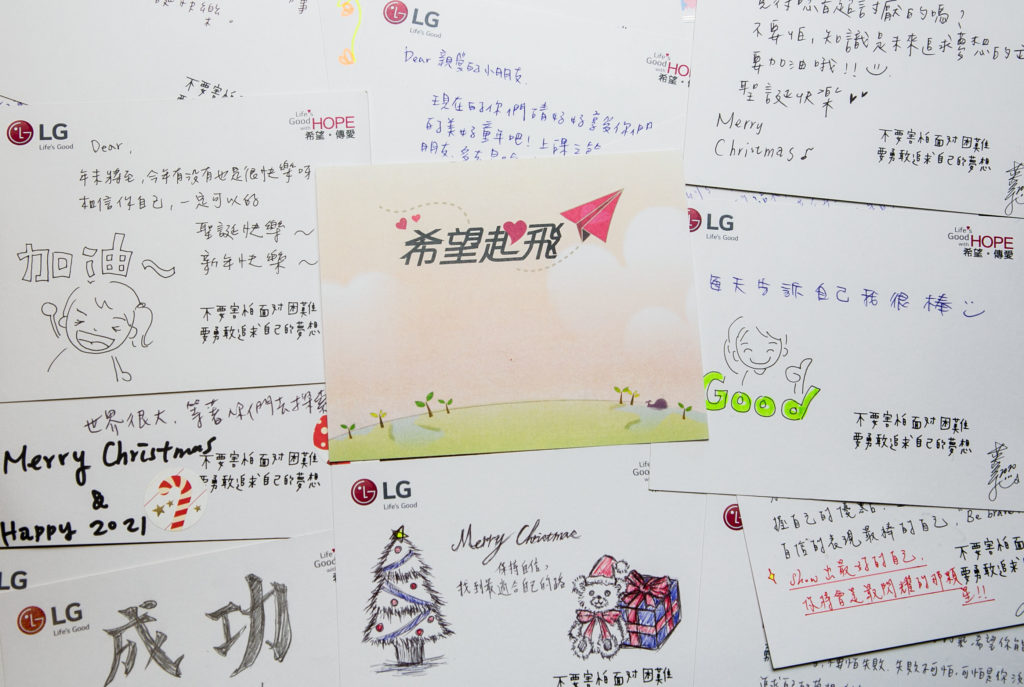 LG
Life's Good
Dear 親愛的小朋友.
現在的你們請好好享受你們
的美好童年吧！上課之餘
Life's
Good
with HOPE
希望・傳愛
不要怕,知識是未來追求夢想的
要加油哦!!
聖誕快樂
Merry
Christmas
不要害怕面对困難
要勇敢追求自己的夢想
LG
Life's Good
Life's
Good
with HOPE
希望・傳愛
Dear,
年末將至,今年有没有也是很快樂呀
相信你自己,一定可以的
聖誕快樂～
新年快樂～
加油～
不要害怕面对困難
要勇敢追求自己的夢想
希望起飛
LG
Life's Good
Life's
Good
with HOPE
希望・傳愛
每天告訴自己我很棒
Good
不要害怕面对困難
要勇敢追求自己的夢想
世界很大,等著你們去探索
Merry Christmas
&
Happy 2021
不要害怕面对困難
要勇敢追求自己的夢想
LG
LG
Life's Good
成功
LG
Life's Good
Merry Christmas
保持自信,
找到最適合自己的路
不要害怕面对困難
握自己的優點
自信的表現最棒的自己. "Be brave
show出最好的自己.
你將會是最閃耀的那顆
星!!
不要害怕
要勇敢追